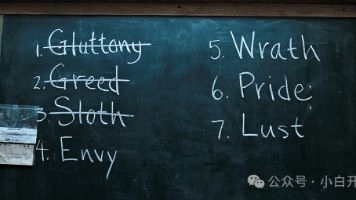 1. Gluttony
2. Greed
3 Sloth
4. Envy
5. Wrath
6. Pride
7. Lust
公众号·小白开